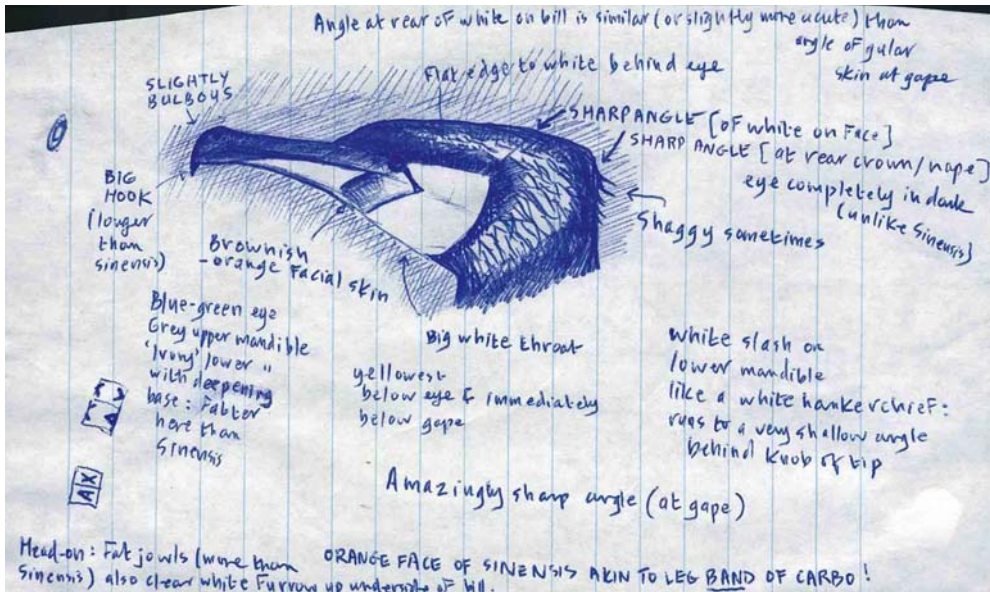 Angle at rear of white on bill is similar (or slightly more acute) than
angle of gular
skin at gape
Flat edge to white behind eye
SLIGHTLY
BULBOUS
SHARP ANGLE [of white on face]
SHARP ANGLE [at rear crown/nape]
eye completely in dark
(unlike Sinensis)
Shaggy sometimes
BIG
HOOK
(longer
than
sinensis)
Brownish
-orange facial skin
Big white throat
Blue-green eye
Grey upper mandible
'Ivory' lower "
with deepening
base: Fatter
here than
Sinensis
yellowest
below eye & immediately
below gape
white slash on
lower mandible
like a white hankerchief:
runs to a very shallow angle
behind knob of tip
AX
Amazingly sharp angle (at gape)
Head-on: Fat jowls (more than
Sinensis) also clear white furrow up underside of bill.
ORANGE FACE OF SINENSIS AKIN TO LEG BAND OF CARBO!